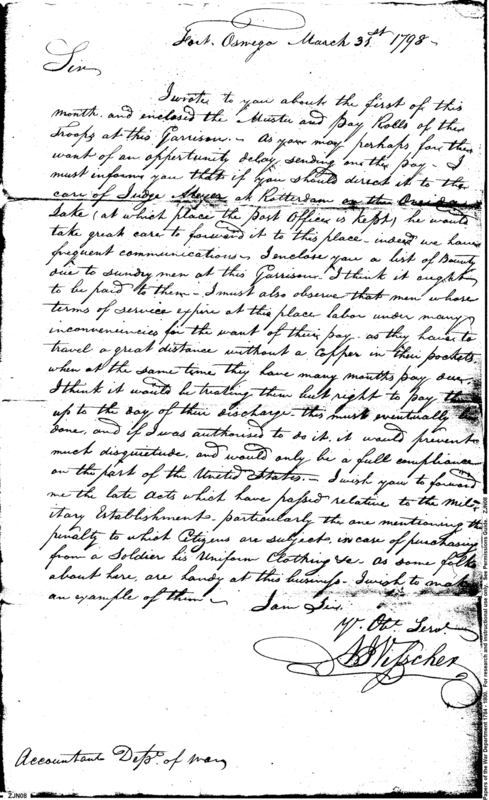 Fort Oswego March 31.st 1798
Sir
I wrote to you about the first of this
month, and enclosed the Muster and Pay Rolls of the
Troops at this Garrison. As you may perhaps for the
want of an oppertunity delay sending on the pay - I
must inform you that if you should direct it to the
care of Judge Meyer at Rotterdam on the Oneida
Lake (at which place the Post Office is kept) he would
take great care to forward it to this place, indeed we have
frequent communications. I enclose you a list of Bounty
due to sundry men at this Garrison. I think it ought
to be paid to them - I must also observe that men whose
terms of service expire at this place labor under many
inconveniencies for the want of their pay as they have to
travel a great distance without a Copper in their pockets,
when at the same time they have many months pay due
I think it would be treating them but right to pay them
up to the day of their discharge. this must eventually be
done, and if I was authorised to do it, it would prevent
much disquietude, and would only be a full compliance
on the part of the United States. - I wish you to forward
me the late Acts which have passed relative to the Mil-
itary Establishment. particularly the one mentioning the
penalty to which Citizens are subject, in case of purchasing
from a Soldier his Uniform Clothing &c. as some folks
about here, are handy at this business - I wish to make
an example of them -
I am Sir
Yr. Obt. Servt.
NB Visscher
Accountant Dept. of War
ZJN08
Papers of the War Department 1784 - 1800. For research and instructional use only. See Permissions Guide. ZJN08